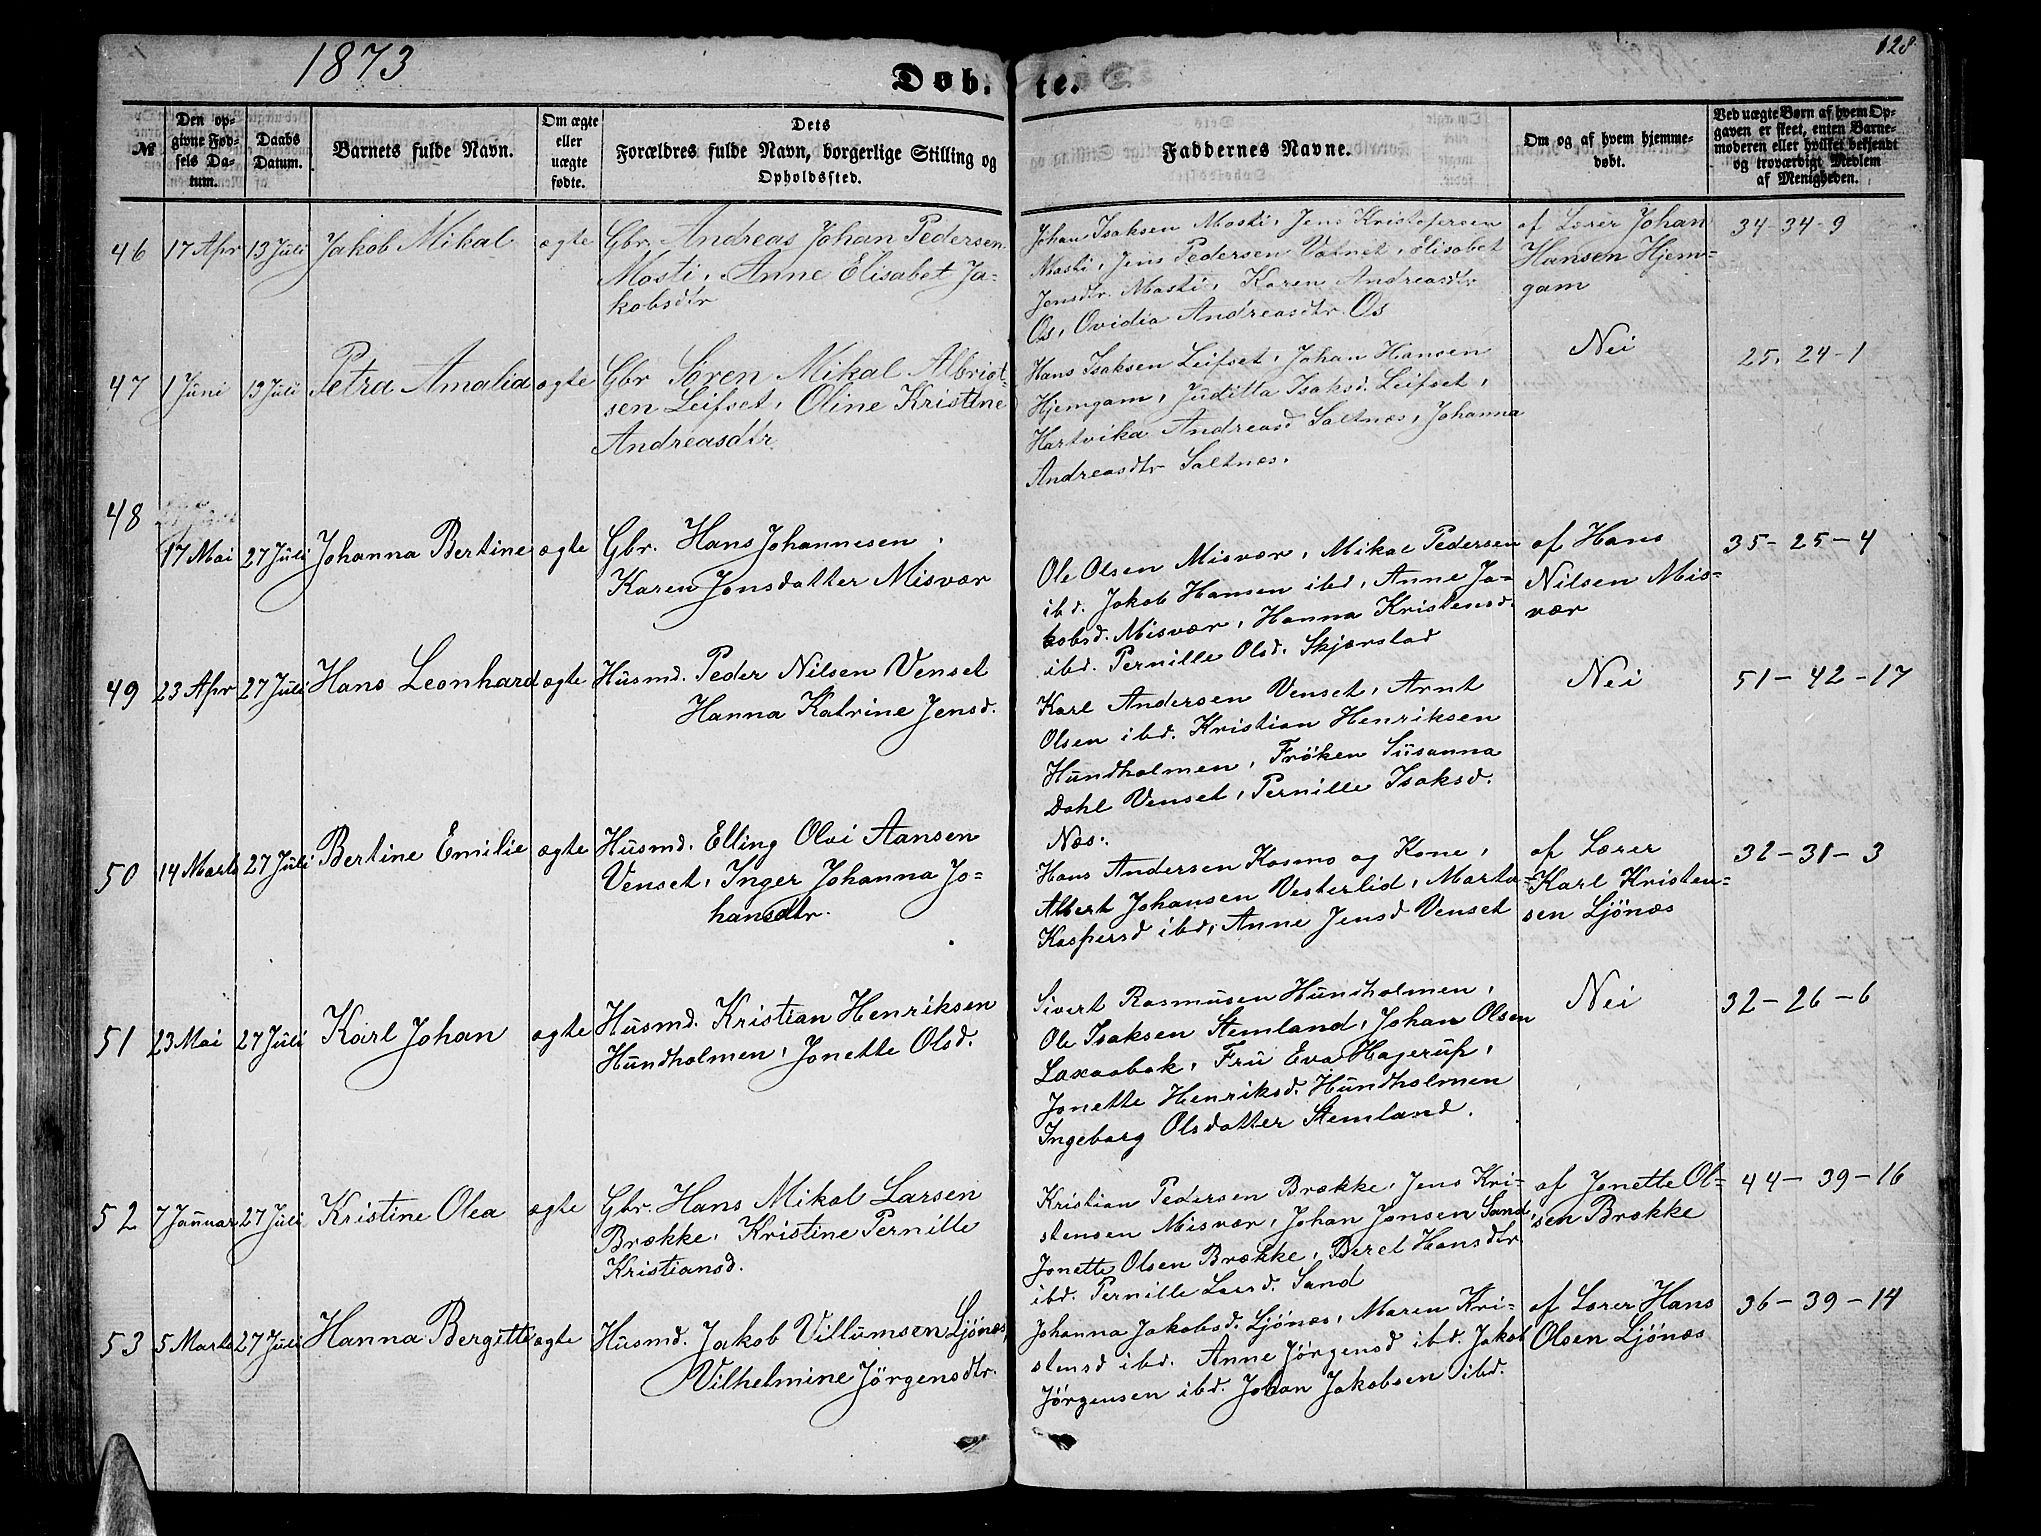 1873
128
Døbte.
№
Den opgivne Fødsels Datum.
Daabs Datum.
Barnets fulde Navn.
Om ægte eller uægte fødte.
Dets Forældres fulde Navn, borgerlige Stilling og Opholdssted.
Faddernes Navne.
Om og af hvem hjemmedøbt.
Ved uægte Børn af hvem Opgaven er skeet, enten Barnemoderen eller hvilket bekjendt og troværdigt Medlem af Menigheden.
46 17 Apr 13 Juli Jakob Mikal ægte
Gbr. Andreas Johan Pedersen
Mosti, Anne Elisabet Ja-
kobsdtr
Johan Isaksen Mosti, Jens Kristofersen
Mosti, Jens Pedersen Vatnet, Elisabet
Jensdtr. Mosti, Karen Andreasdtr
Os, Ovidia Andreasdtr. Os
af Lærer Johan
Hansen Hjem-
gam
34-34-9
47 1 Juni 13 Juli Petra Amalia ægte
Gbr Sören Mikal Albrigt-
sen Leifset, Oline Kristine
Andreasdtr
Hans Isaksen Leifset, Johan Hansen
Hjemgam, Juditta Isaksd. Leifset,
Hartvika Andreasd Saltnes, Johanna
Andreasdtr Saltnes.
Nei
25. 24-1
48
17 Mai 27 Juli Johanna Bertine ægte
Gbr. Hans Johannesen,
Karen Jonsdatter Misvær
Ole Olsen Misvær, Mikal Pedersen
ibd. Jakob Hansen ibd, Anne Ja-
kobsd. Misvær, Hanna Kristensd.
ibd. Pernille Olsd. Skjærstad
af Hans
Nilsen Mis-
vær
35-25-4
49 23 Apr 27 Juli Hans Leonhard ægte
Husmd. Peder Nilsen Venset
Hanna Katrine Jensd.
Karl Andersen Venset, Arnt
Olsen ibd. Kristian Henriksen
Hundholmen, Fröken Susanna
Dahl Venset, Pernille Isaksd.
Næs.
Nei
51-42-17
50 14 Marts 27 Juli Bertine Emilie ægte
Husmd. Elling Olai Aansen
Venset, Inger Johanna Jo-
hansdtr.
Hans Andersen Kosmo og Kone,
Albert Johansen Vesterlid, Marta
Kaspersd ibd, Anne Jensd Venset
af Lærer
Karl Kristen-
sen Ljönes
32-31-3
51 23 Mai 27 Juli Karl Johan ægte
Husmd. Kristian Henriksen
Hundholmen, Jonette Olsd.
Sivert Rasmusen Hundholmen,
Ole Isaksen Stemland, Johan Olsen
Laxaabak, Fru Eva Hagerup,
Jonette Henriksd. Hundholmen
Ingeborg Olsdatter Stemland.
Nei
32-26-6
52 7 Januar 27 Juli Kristine Olea ægte
Gbr. Hans Mikal Larsen
Brække, Kristine Pernille
Kristiansd.
Kristian Pedersen Brække, Jens Kri-
stensen Misvær, Johan Jonsen Sand,
Jonette Olsen Brække, Berel Hansdtr
ibd. Pernille Larsd. Sand
af Jonette Ol-
sen Brække
44-39-16
53 5 Marts 27 Juli Hanna Bergitte ægte
Husmd. Jakob Villumsen Ljönes,
Vilhelmine Jörgensdtr.
Johanna Jakobsd. Ljönes, Maren Kri-
stensd ibd. Anne Jörgensd ibd. Jakob
Jörgensen ibd. Johan Jakobsen ibd.
af Lærer Hans
Olsen Ljönes
36-39-14